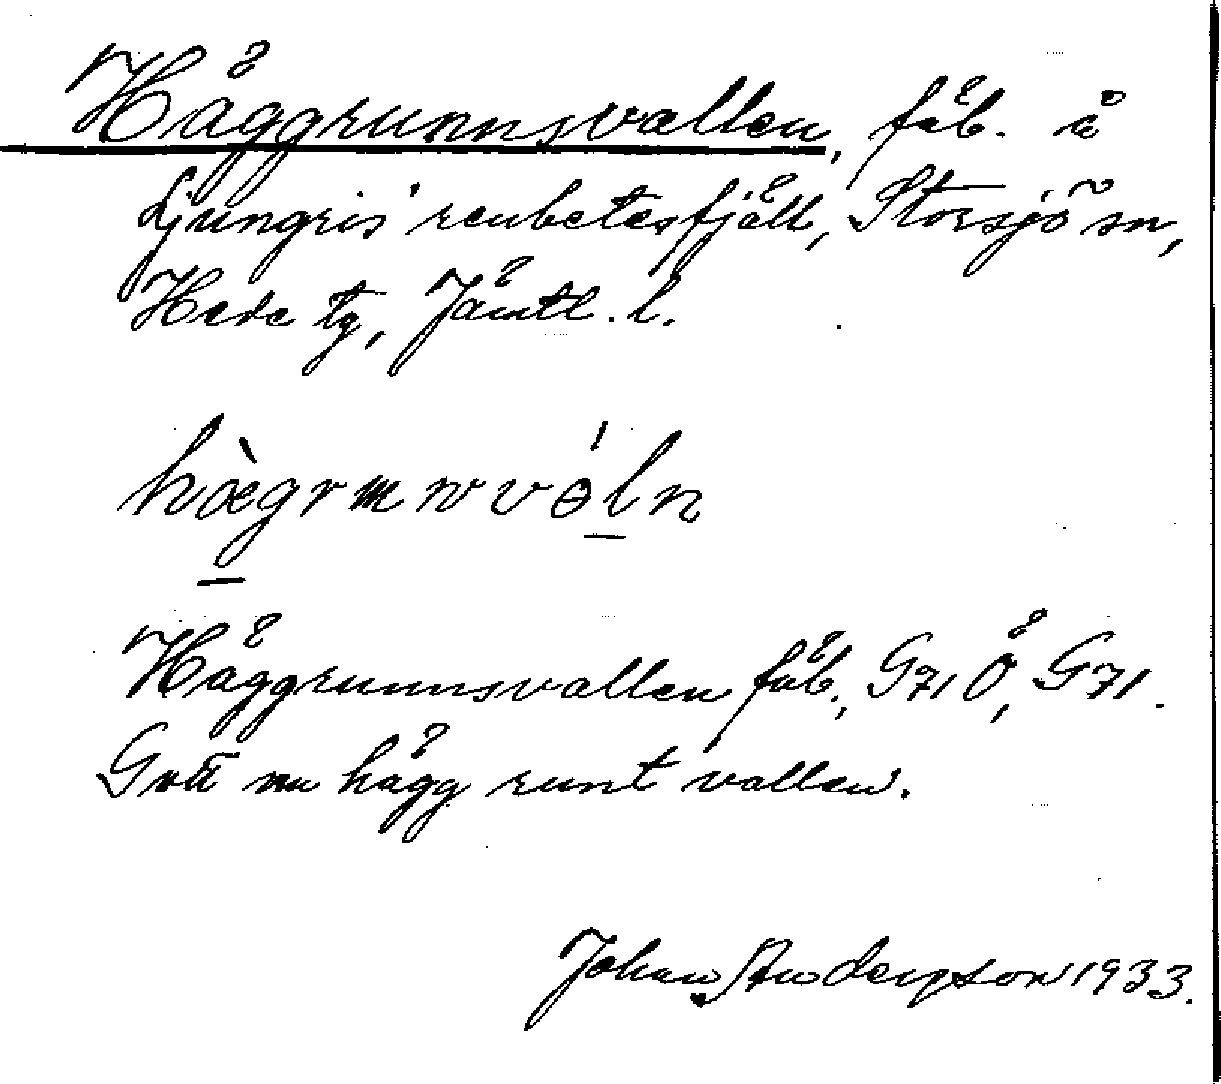 Häggrunnsvallen, fäb. å
Ljungris' renbetesfjäll, Storsjö sn,
Hede tg, Jämtl. l.
Häggrunnsvallen fäb., G71 Ö, G71.
Gott nu hägg runt vallen.
Johan Anderson 1933.